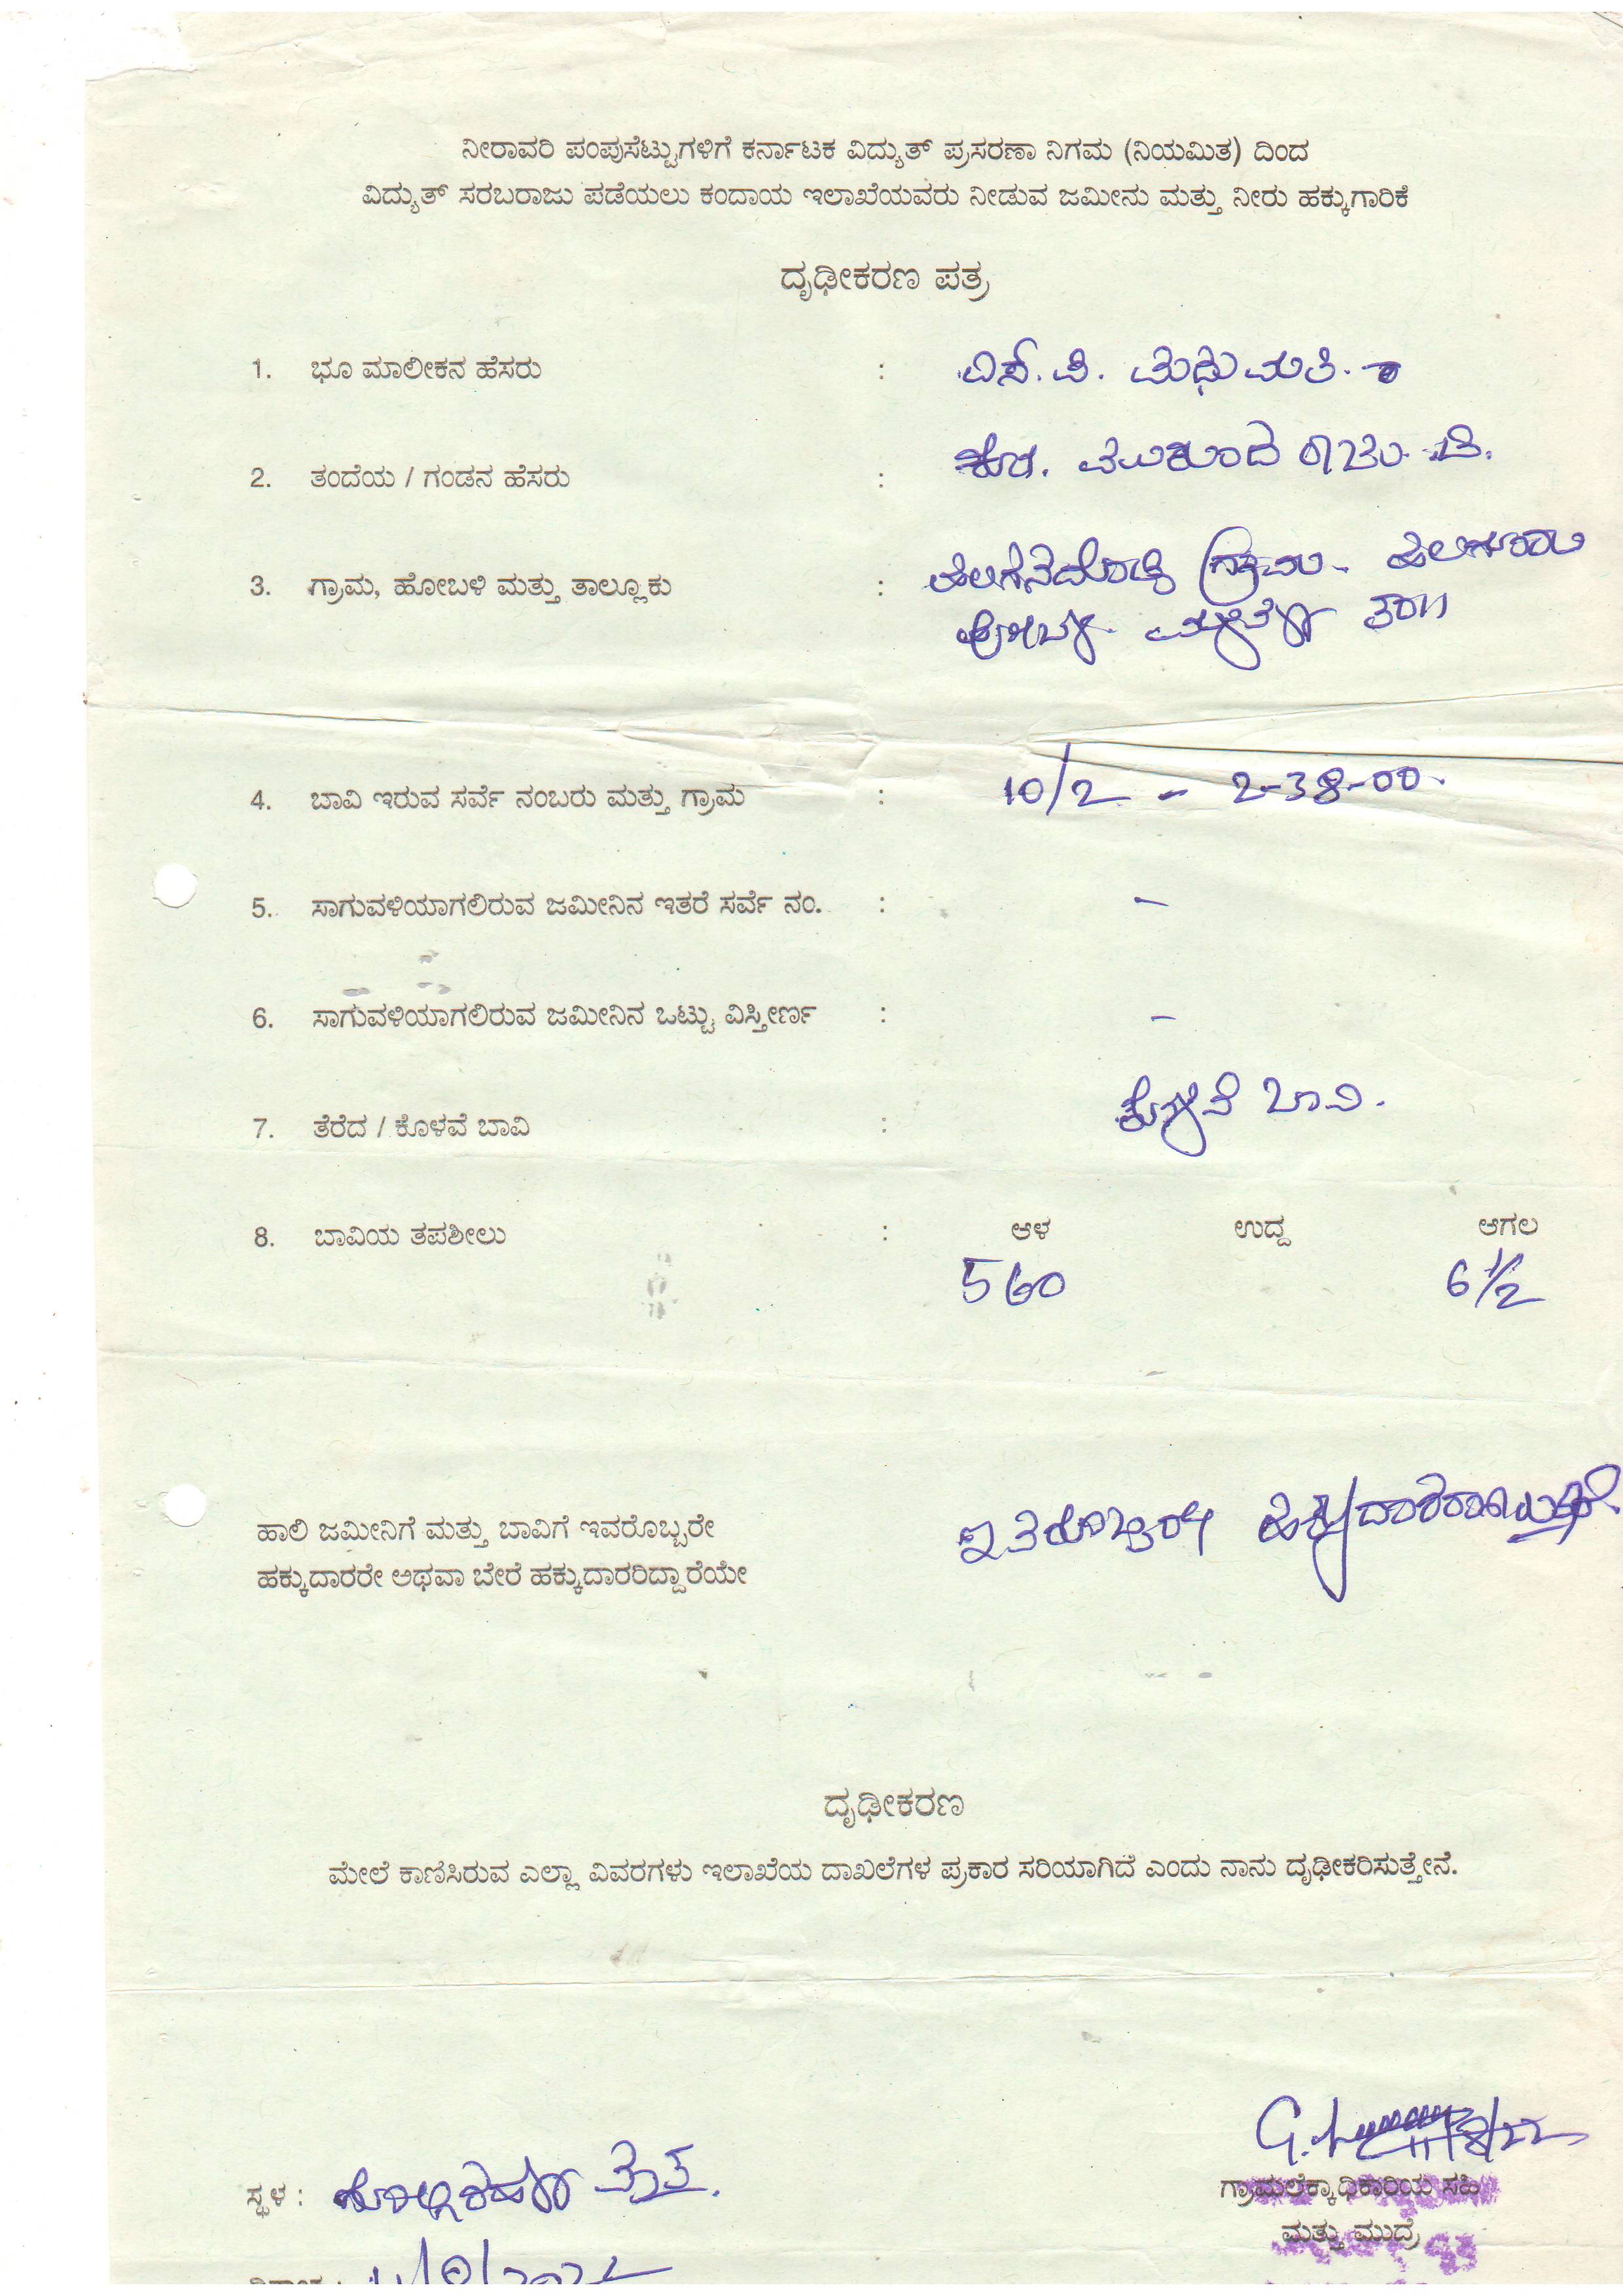 ನೀರಾವರಿ ಪಂಪುಸೆಟ್ಟುಗಳಿಗೆ ಕರ್ನಾಟಕ ವಿದ್ಯುತ್ ಪ್ರಸರಣಾ ನಿಗಮ (ನಿಯಮಿತ) ದಿಂದ
ವಿದ್ಯುತ್ ಸರಬರಾಜು ಪಡೆಯಲು ಕಂದಾಯ ಇಲಾಖೆಯವರು ನೀಡುವ ಜಮೀನು ಮತ್ತು ನೀರು ಹಕ್ಕುಗಾರಿಕೆ
ದೃಢೀಕರಣ ಪತ್ರ
1. ಭೂ ಮಾಲೀಕನ ಹೆಸರು : ಎಸ್. ವಿ. ಮಧುಮತಿ.
2. ತಂದೆಯ / ಗಂಡನ ಹೆಸರು : ಕೋಂ. ಮುಕುಂದ ರಾಜು
3. ಗ್ರಾಮ, ಹೋಬಳಿ ಮತ್ತು ತಾಲ್ಲೂಕು : ಗ್ರಾಮ - ಹಲಗೂರು
ಹೋಬಳಿ. ಮಳವಳ್ಳಿ ತಾ॥
4. ಬಾವಿ ಇರುವ ಸರ್ವೆ ನಂಬರು ಮತ್ತು ಗ್ರಾಮ : 10/2 - 2-38-00.
5. ಸಾಗುವಳಿಯಾಗಲಿರುವ ಜಮೀನಿನ ಇತರೆ ಸರ್ವೆ ನಂ. : -
6. ಸಾಗುವಳಿಯಾಗಲಿರುವ ಜಮೀನಿನ ಒಟ್ಟು ವಿಸ್ತೀರ್ಣ : -
7. ತೆರೆದ / ಕೊಳವೆ ಬಾವಿ : ಕೊಳವೆ ಬಾವಿ.
8. ಬಾವಿಯ ತಪಶೀಲು : ಆಳ ಉದ್ದ ಅಗಲ
560 6 1/2
ಹಾಲಿ ಜಮೀನಿಗೆ ಮತ್ತು ಬಾವಿಗೆ ಇವರೊಬ್ಬರೇ
ಹಕ್ಕುದಾರರೇ ಅಥವಾ ಬೇರೆ ಹಕ್ಕುದಾರರಿದ್ದಾರೆಯೇ
ಇವರೊಬ್ಬರೇ ಹಕ್ಕುದಾರರಾಗಿರುತ್ತಾರೆ.
ದೃಢೀಕರಣ
ಮೇಲೆ ಕಾಣಿಸಿರುವ ಎಲ್ಲಾ ವಿವರಗಳು ಇಲಾಖೆಯ ದಾಖಲೆಗಳ ಪ್ರಕಾರ ಸರಿಯಾಗಿದೆ ಎಂದು ನಾನು ದೃಢೀಕರಿಸುತ್ತೇನೆ.
ಗ್ರಾಮಲೆಕ್ಕಾಧಿಕಾರಿಯ ಸಹಿ
ಸ್ಥಳ :
ಮತ್ತು ಮುದ್ರೆ